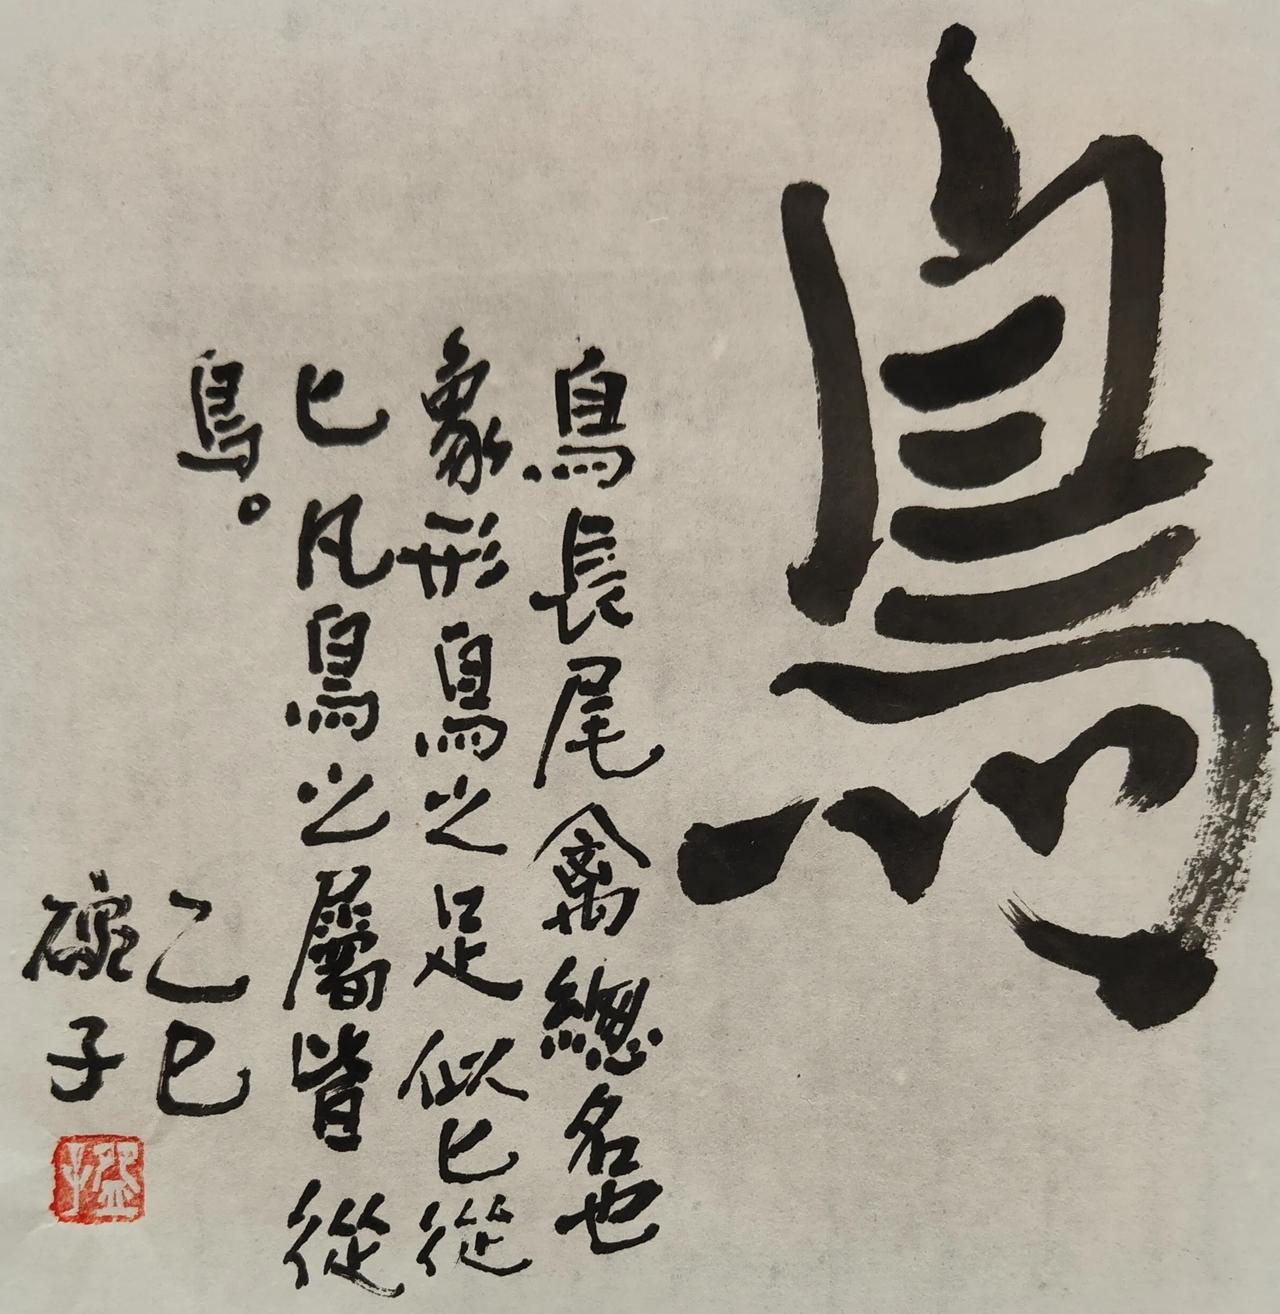 鳥
鳥長尾禽總名也
象形鳥之足似匕從
匕凡鳥之屬皆從
鳥。
乙巳
子